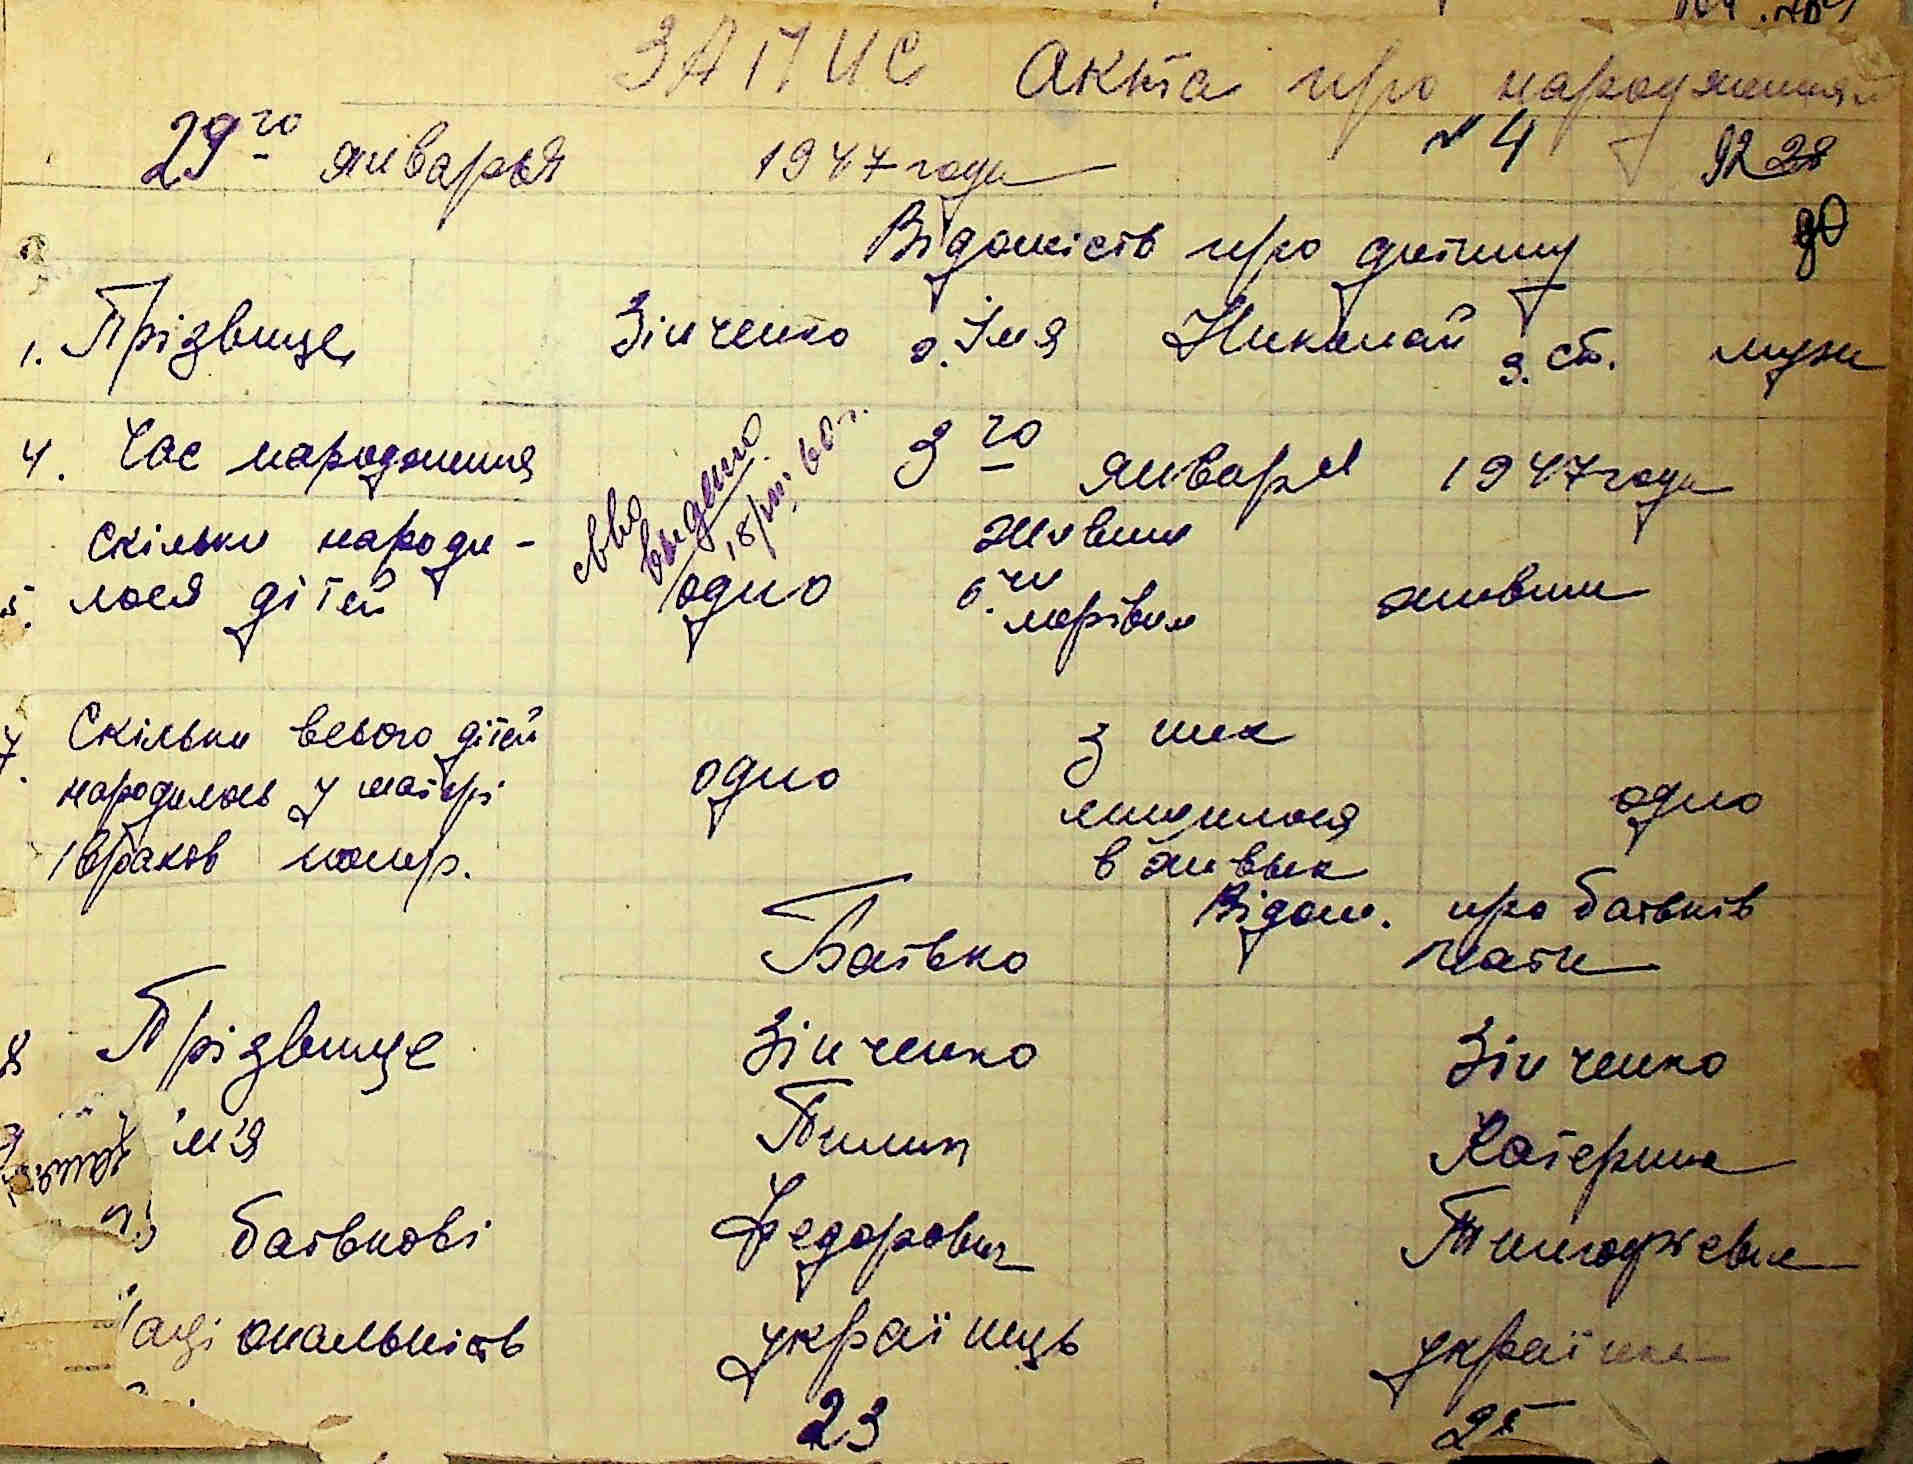 ЗАПИС Акта про народження
29го январья 1947 года № 4
92 28
до
Відомість про дитину
1. Прізвище Зінченко 2. Імя Николай 3. ст. муж
4. Час народження 3го января 1947 года
сво выдано 18/VII 60 г.
5. Скільки народи-
лося дітей одно 6. живим чи мертвим живим
7. Скільки всього дітей
народилось у матері
одно з них лишилося в живых одно
Відом. про батьків
Батько мати
8 Прізвище Зінченко Зінченко
9 м'я Пилип Катерина
батькові Федорович
аціональність українець українка
23 25